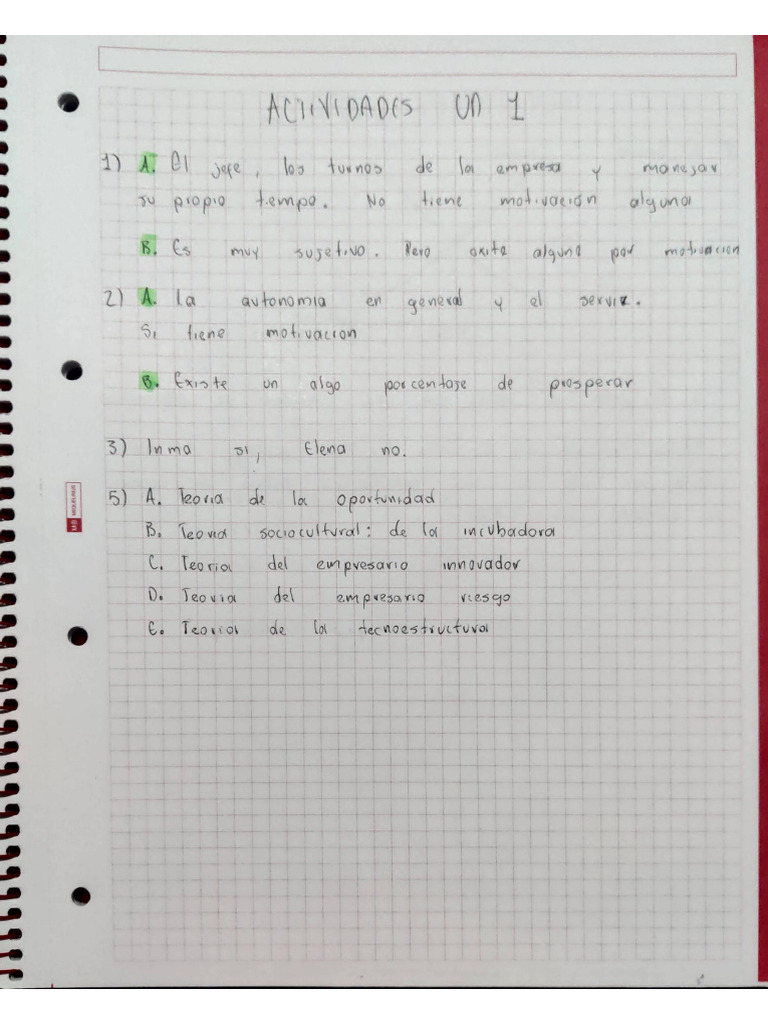 ACTIVIDADES UD 1
1) A. El jefe, los turnos de la empresa y manejar
su propio tiempo. No tiene motivación alguna
B. Es muy sujetivo. Pero exite alguna por motivacion
2) A. La autonomia en general y el servir.
Si tiene motivacion
B. Existe un algo porcentaje de prosperar
3) Inma si, Elena no.
5) A. Teoria de la oportunidad
B. Teoria sociocultural: de la incubadora
C. Teoria del empresario innovador
D. Teoria del empresario riesgo
E. Teoria de la tecnoestructura
MIQUELRIUS